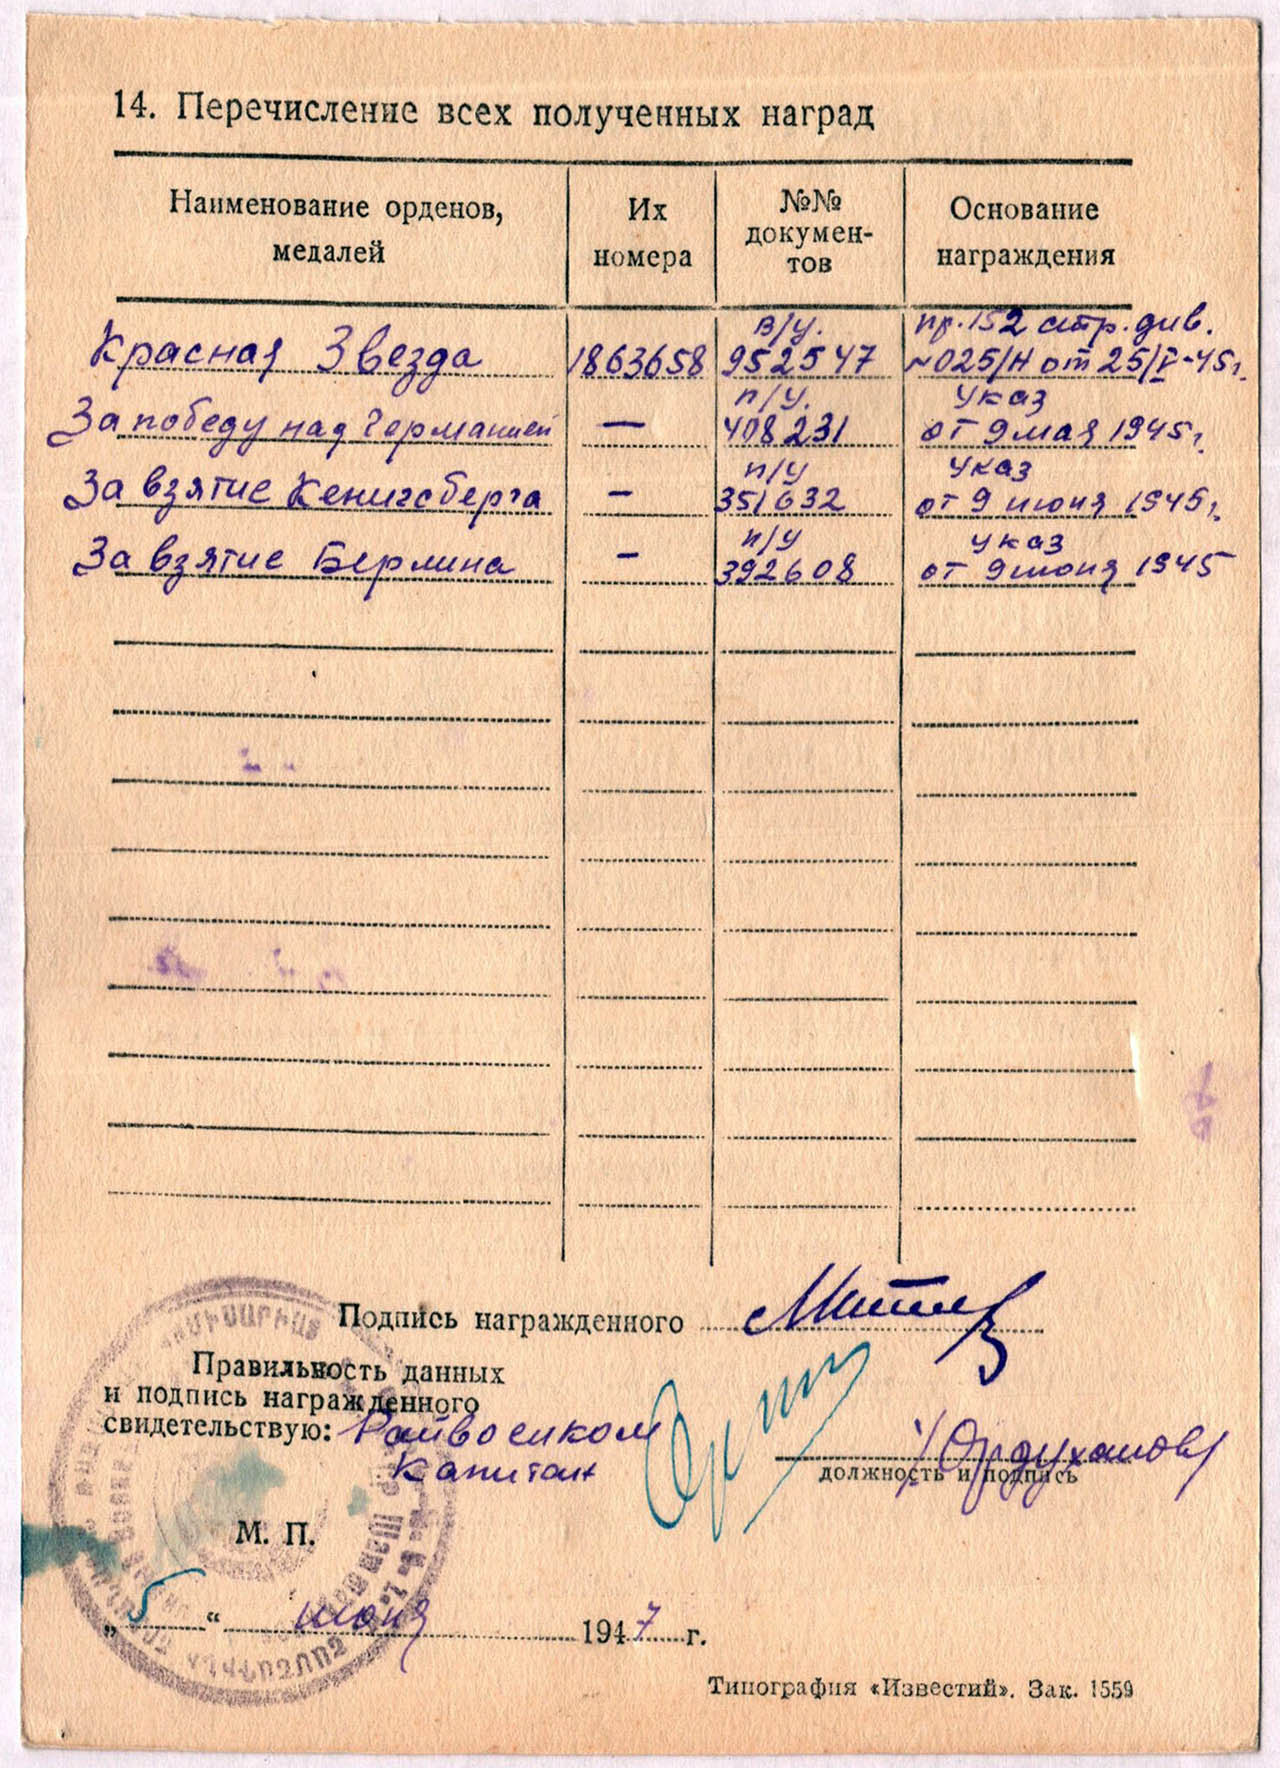 14. Перечисление всех полученных наград
Наименование орденов, медалей
Их номера
№№ докумен-
тов
Основание награждения
Красная Звезда 1863658 в/у. 952547 пр. 152 стр. див. №025/н от 25/V-45г.
За победу над Германией — п/у. 408231 Указ от 9 мая 1945г.
За взятие Кенигсберга — п/у 351632 Указ от 9 июня 1945г.
За взятие Берлина — п/у 392608 Указ от 9 июня 1945
Подпись награжденного
Правильность данных
и подпись награжденного
свидетельствую: Райвоенком
Капитан
должность и подпись
М. П.
„5“ июня 1947 г.
Типография «Известий». Зак. 1559